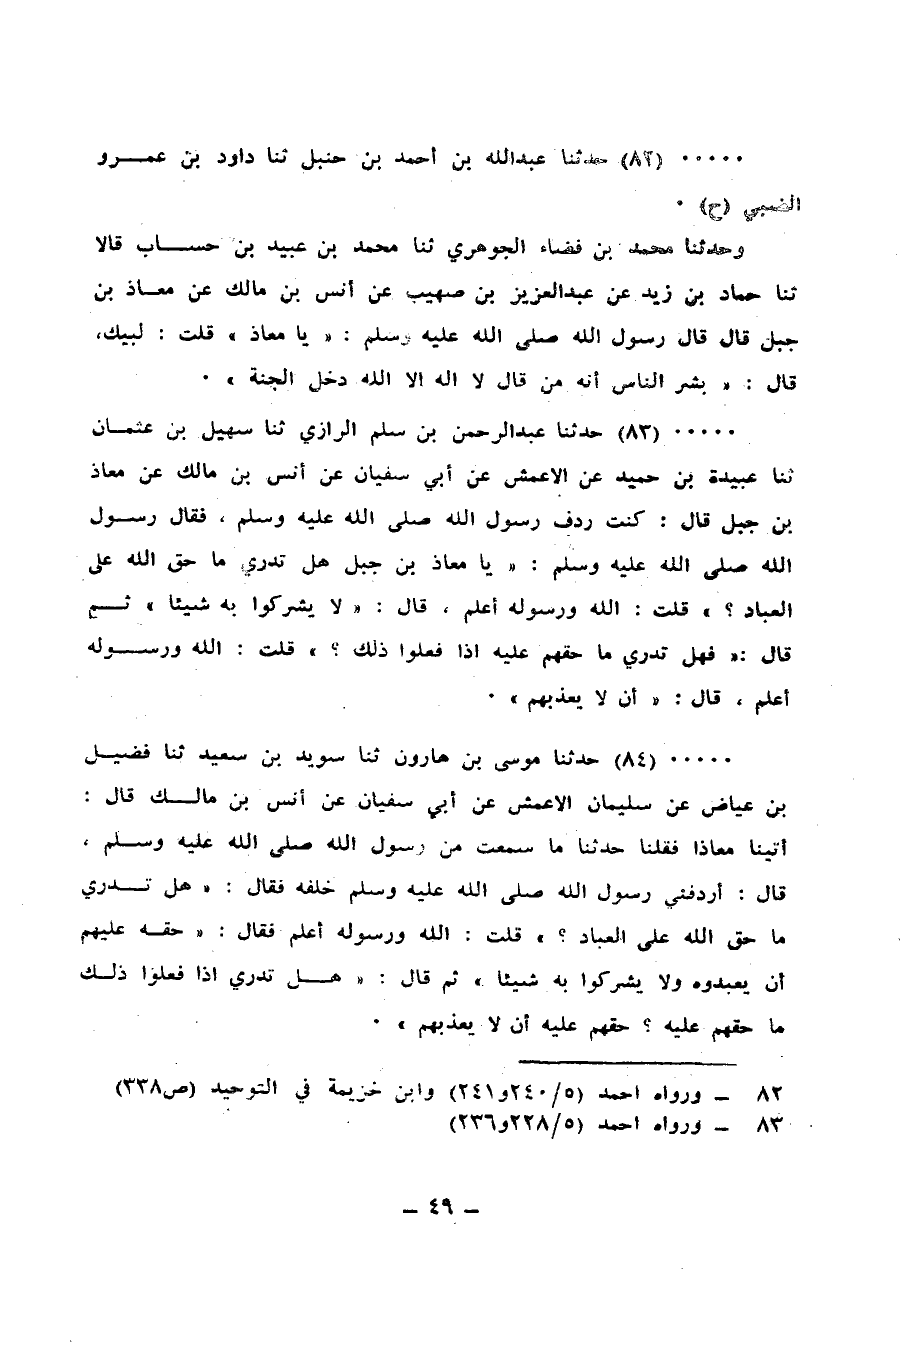 ٠٠٠٠٠ (٨٢) حدثنا عبدالله بن أحمد بن حنبل ثنا داود بن عمـــرو
الضبي (ح) ٠
وحدثنا محمد بن فضاء الجوهري ثنا محمد بن عبيد بن حســـاب قالا
ثنا حماد بن زيد عن عبدالعزيز بن صهيب عن أنس بن مالك عن معــاذ بن
جبل قال قال رسول الله صلى الله عليه وسلم : « يا معاذ » قلت : لبيك،
قال : « بشر الناس أنه من قال لا اله الا الله دخل الجنة » ٠
٠٠٠٠٠ (٨٣) حدثنا عبدالرحمن بن سلم الرازي ثنا سهيل بن عثمــان
ثنا عبيدة بن حميد عن الاعمش عن أبي سفيان عن أنس بن مالك عن معاذ
بن جبل قال : كنت ردف رسول الله صلى الله عليه وسلم ، فقال رســول
الله صلى الله عليه وسلم : « يا معاذ بن جبل هل تدري ما حق الله على
العباد ؟ » قلت : الله ورسوله أعلم ، قال : « لا يشركوا به شيئا » ثـــم
قال :« فهل تدري ما حقهم عليه اذا فعلوا ذلك ؟ » قلت : الله ورســـوله
أعلم ، قال : « أن لا يعذبهم » ٠
٠٠٠٠٠ (٨٤) حدثنا موسى بن هارون ثنا سويد بن سعيد ثنا فضيــل
بن عياض عن سليمان الاعمش عن أبي سفيان عن أنس بن مالـــك قال :
أتينا معاذا فقلنا حدثنا ما سمعت من رسول الله صلى الله عليه وســلم ،
قال : أردفني رسول الله صلى الله عليه وسلم خلفه فقال : « هل تـــدري
ما حق الله على العباد ؟ » قلت : الله ورسوله أعلم فقال : « حقــه عليهم
أن يعبدوه ولا يشركوا به شيئا » ثم قال : « هـــل تدري اذا فعلوا ذلــك
ما حقهم عليه ؟ حقهم عليه أن لا يعذبهم » ٠
٨٢ ــ ورواه احمد (٥/٢٤٠و٢٤١) وابن خزيمة في التوحيد (ص٣٣٨)
٨٣ ــ ورواه احمد (٥/٢٢٨و٢٣٦)
ــ ٤٩ ــ